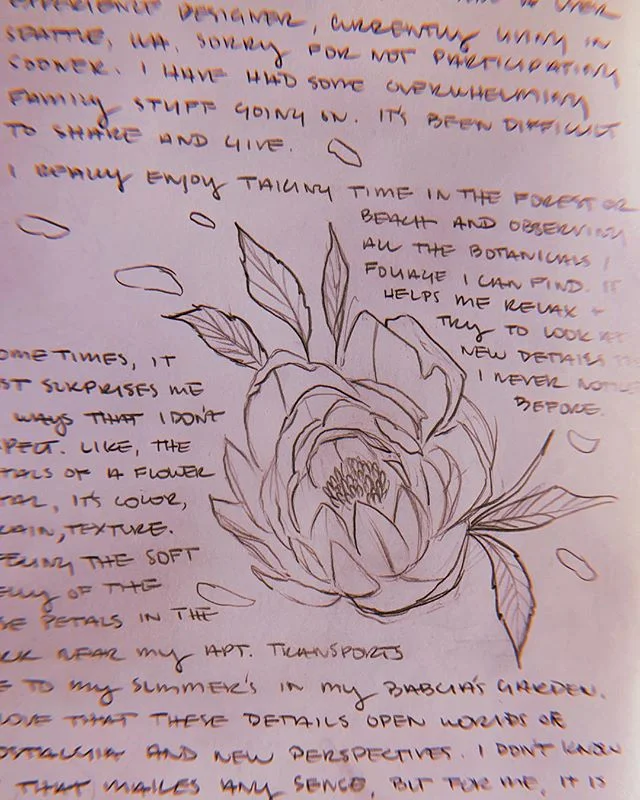 EXPERIENCE DESIGNER, CURRENTLY LIVING IN
SEATTLE, WA. SORRY FOR NOT PARTICIPATING
SOONER. I HAVE HAD SOME OVERWHELMING
FAMILY STUFF GOING ON. IT'S BEEN DIFFICULT
TO SHARE AND GIVE.
I REALLY ENJOY TAKING TIME IN THE FOREST OR
BEACH AND OBSERVING
ALL THE BOTANICALS /
FOLIAGE I CAN FIND. IT
HELPS ME RELAX +
TRY TO LOOK AT
NEW DETAILS
I NEVER NOTICE
BEFORE.
OMETIMES, IT
ST SURPRISES ME
WAYS THAT I DON'T
PECT. LIKE, THE
TALS OF A FLOWER
TAL, ITS COLOR,
RAIN, TEXTURE.
EELING THE SOFT
OF THE
SE PETALS IN THE
RK NEAR MY APT. TRANSPORTS
E TO MY SUMMER'S IN MY BABCIA'S GARDEN.
LOVE THAT THESE DETAILS OPEN WORLDS OF
OSTALGIA AND NEW PERSPECTIVES. I DON'T KNOW
THAT MAKES ANY SENCE, BUT FOR ME, IT IS